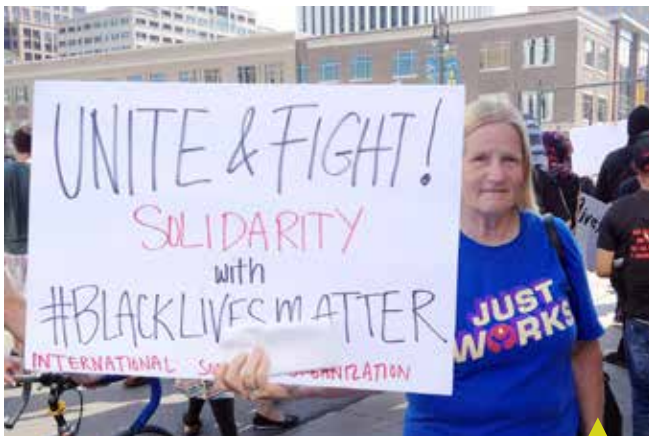 UNITE & FIGHT!
SOLIDARITY
with
#BLACKLIVESMATTER
INTERNATIONAL
JUST
WORKS